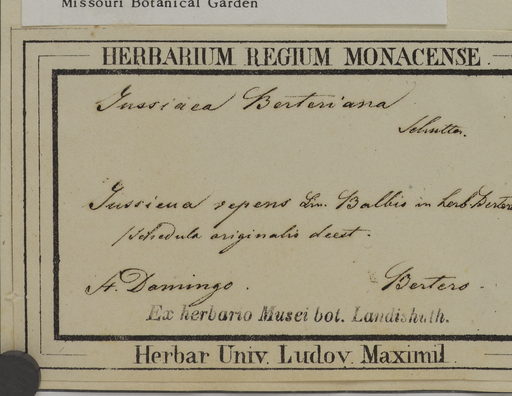 Missouri Botanical Garden
HERBARIUM REGIUM MONACENSE.
Jussiaea Berteriana
Schultes.
Jussieua repens Lin. Balbis in herb. Bertero
/Schedula originalis deest.
St. Domingo. Bertero.
Ex herbario Musei bot. Landishuth.
Herbar Univ. Ludov. Maximil